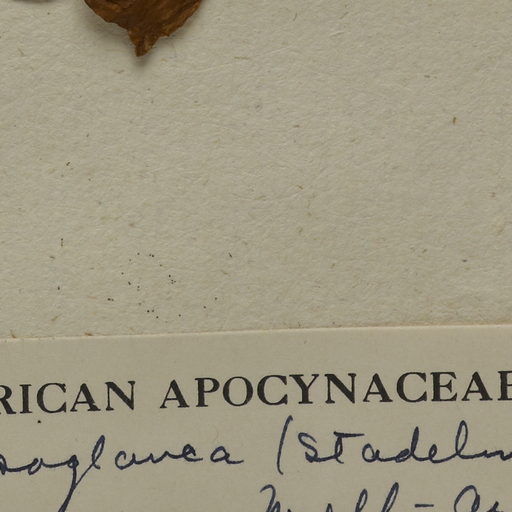 RICAN APOCYNACEAE
soglauca (Stadelm
Müll-